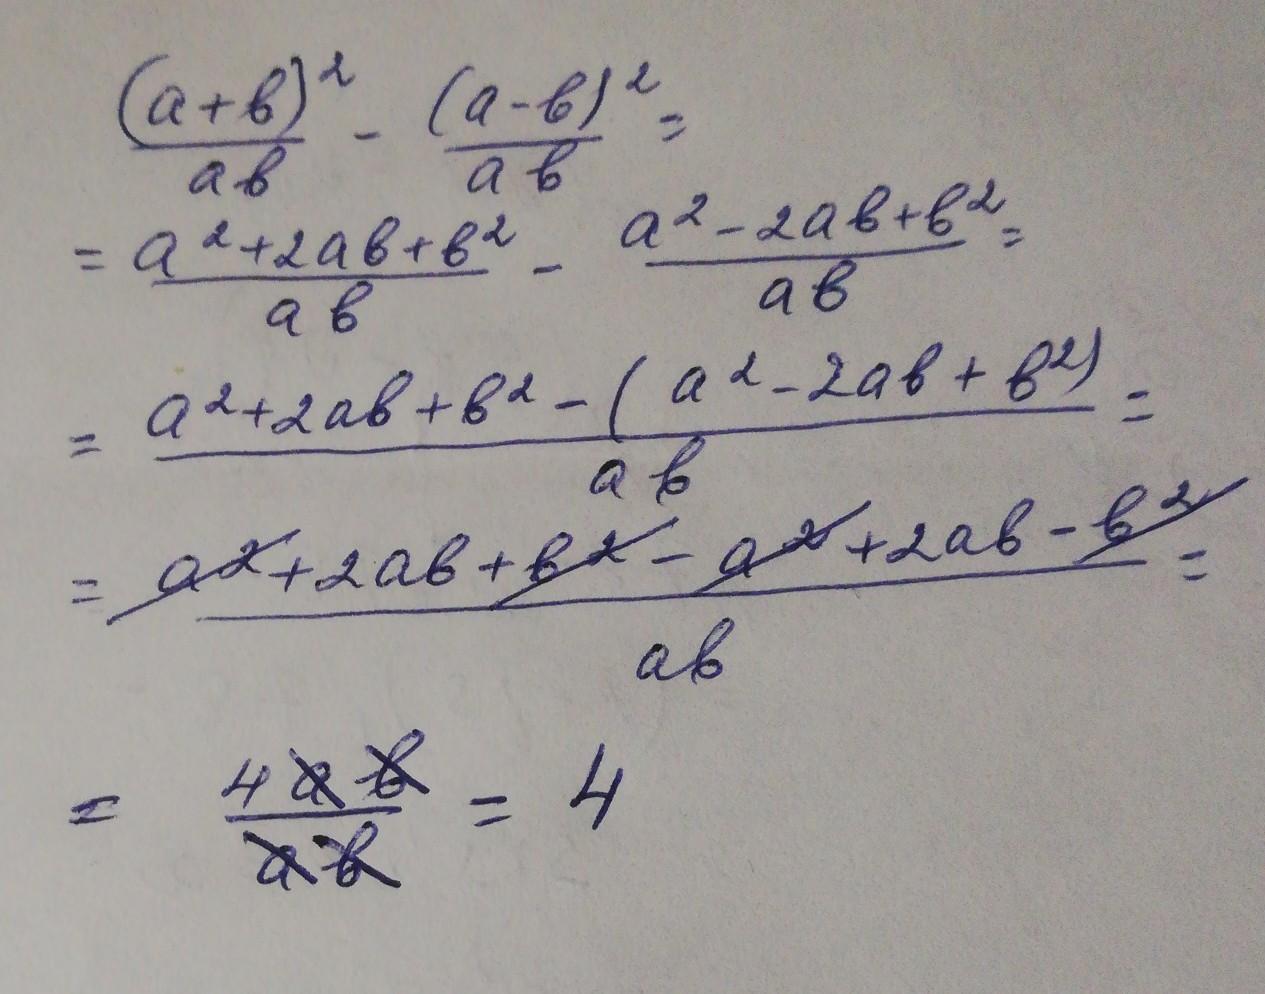 (a+b)²/ab - (a-b)²/ab =
= a²+2ab+b²/ab - a²-2ab+b²/ab =
= a²+2ab+b²-(a²-2ab+b²)/ab =
= a²+2ab+b²-a²+2ab-b²/ab =
= 4ab/ab = 4